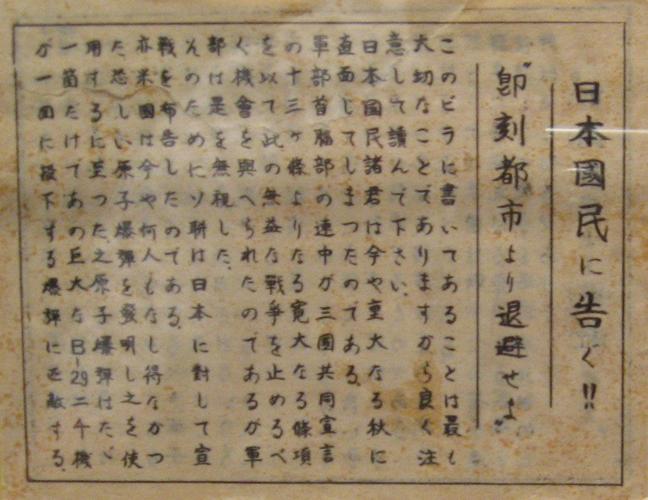 日本國民に告ぐ!!
"卽刻都市より退避せよ"
このビラに書いてあることは最も
大切なことでありますから良く注
意して讀んで下さい。
日本國民諸君は今や重大なる秋に
直面してしまつたのである。
軍部首腦部の連中が三國共同宣言
の十三ヶ條よりなる寛大なる條項
を以て此の無益な戰爭を止めるべ
く機會を與へられたのであるが軍
部は是を無視した。
んのためにソ聯は日本に對して宣
戰を布告したのである。
亦米國は今や何人もなし得なかつ
た恐しい原子爆彈を發明し之を使
用するに至つた。之原子爆彈はたゞ
一箇だけであの巨大なB-29二千機
が一回に投下する爆彈に匹敵する。